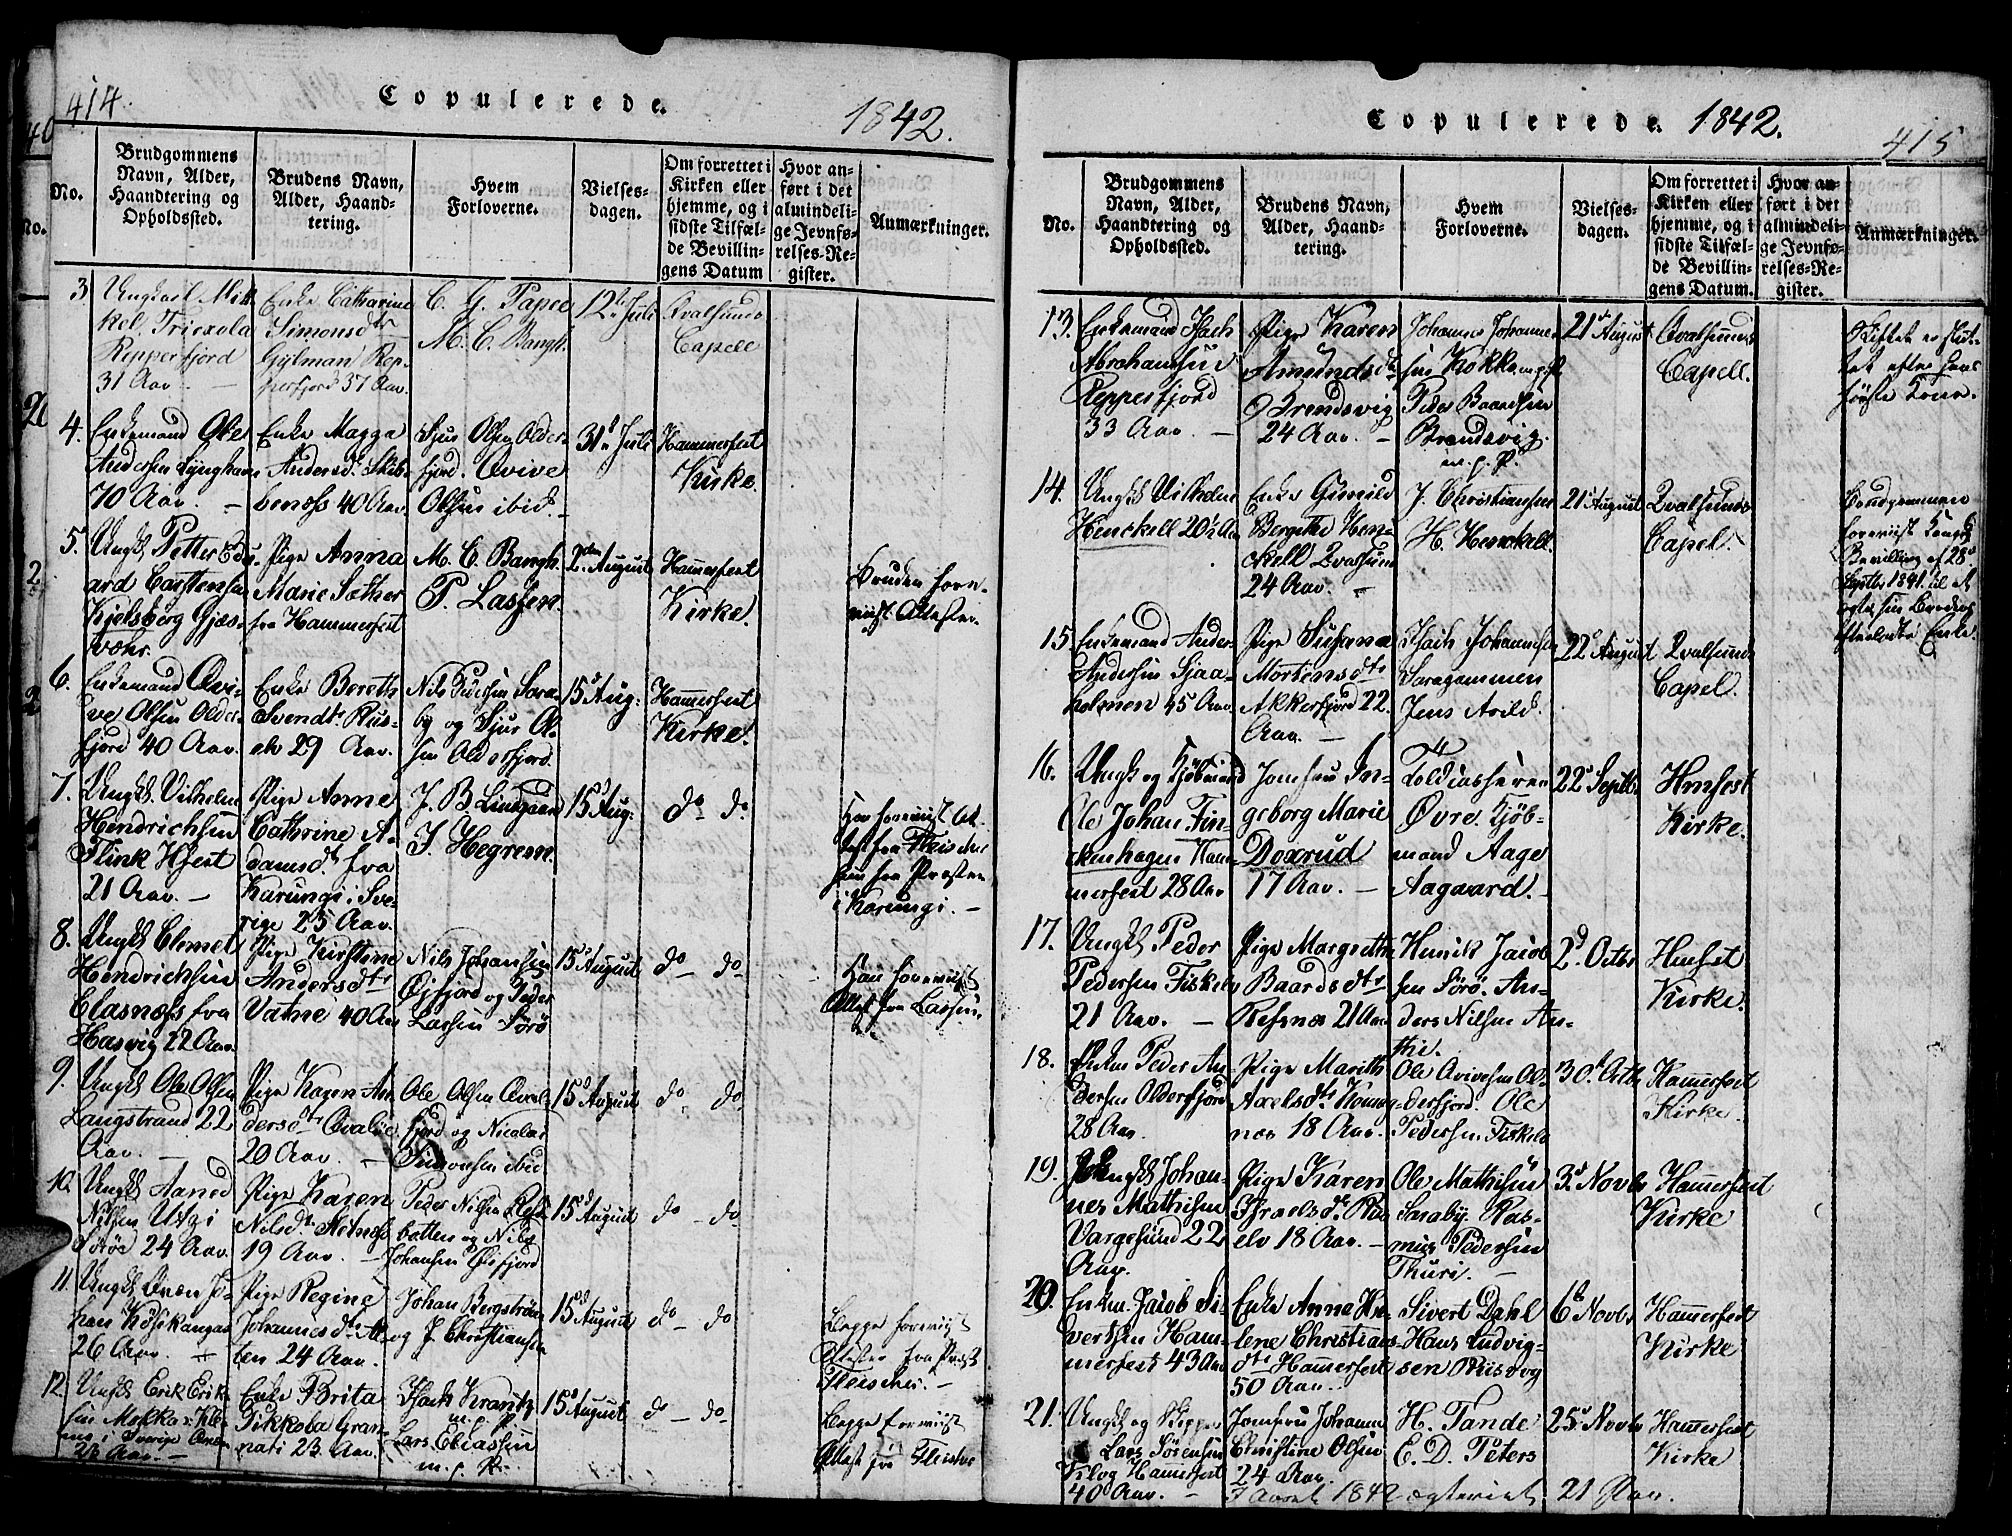 414.
Copulerede.
1842.
No.
Brudgommens
Navn, Alder,
Haandtering og
Opholdssted.
Brudens Navn,
Alder, Haand-
tering.
Hvem
Forloverne.
Vielses-
dagen.
Om forrettet i
Kirken eller
hjemme, og i
sidste Tilfæl-
de Bevillin-
gens Datum
Hvor an-
ført i det
almindeli-
ge Jevnfø-
relses-Re-
gister.
Anmærkninger.
3
Ungkarl Mik-
kel
Repperfjord
31 Aar.
Enke Catharine
Simonsdtr
Gylman Rep-
perfjord 37 Aar.
C. G. Pape
M. C. Bangh.
12te Juli
Qvalsunds
Capell
4.
Enkemand Ole
Andersen Lynghavn
70 Aar.
Enke Magga
Andersdr. Skib-
benæss 40 Aar
Sjur Olsen Older-
fjord. Qvive
Olsen ibid.
31te Juli
Hammerfest
Kirke.
5.
Ungk. Petter Edv-
ard Carstensen
Kjelsberg Gjæs-
vær.
Pige Anna
Marie Sæther
fra Hammerfest
M. C. Bangh.
P. Lassen.
2den August
Hammerfest
Kirke.
Bruden fore-
viist Attester.
6.
Enkemand Qvi-
ve Olsen Older-
fjord 40 Aar.
Enke Bereth
Svendtr. Rus-
elv 29 Aar.
Nils Pedersen Sara-
by og Sjur Ol-
sen Olderfjord.
15d Aug.
Hammerfest
Kirke.
7.
Ungk. Vilhelm
Hendrichsen
Flink Hfest
21 Aar.
Pige Anne
Cathrine A-
damsdr. fra
Karungi i Sve-
rige 25 Aar.
J. B. Lindgaard
J. Hegrem.
15d Aug.
do do
Han foreviist At-
test fra Fleischer
hun fra Præsten
i Karungi.
8.
Ungk. Clemet
Hendrichsen
Clasnæss fra
Hasvig 22 Aar.
Pige Kirstine
Andersdtr
Vatne 40 Aar
Nils Johansen
Øjfjord og Peder
Larssen Sørø
15d August
do do
Han foreviist
Attest fra Lassen.
9.
Ungk. Ole Olsen
Langstrand 22
Aar.
Pige Karen An-
dersdtr Qvaløe
20 Aar.
Ole Olsen Qval-
fjord og Nicolai
Simonsen ibid
15d August
do do
10.
Ungk. Aanod
Nilsen Utgi
Sørøe 24 Aar.
Pige Karen
Nilsdr.
19 Aar.
Peder Nilsen Ref-
botten og Nils
Johansen Øksfjord
15d August
do do
11.
Ungk. Qvæn Jo-
han Koskangas
26 Aar.
Pige Regine
Johannesdr. Al-
ten 24 Aar.
Johan Bergstrøm
og J. Christiansen
15d August
do do
Begge foreviist
Attester fra Præst
Fleischer.
12.
Ungk. Erik Erik-
sen
i Sverige
23 Aar.
Enke Brita
Pikkola Gran-
nati 23 Aar.
Isach Krantz
m. p. P.
Lars Eliassen
m. p. P.
15d August
do do
Begge foreviist
Attest fra Fleischer
Copulerede. 1842.
415
No.
Brudgommens
Navn, Alder,
Haandtering og
Opholdssted.
Brudens Navn,
Alder, Haand-
tering.
Hvem
Forloverne.
Vielses-
dagen.
Om forrettet i
Kirken eller
hjemme, og i
sidste Tilfæl-
de Bevillin-
gens Datum.
Hvor an-
ført i det
almindeli-
ge Jevnfø-
relses-Re-
gister.
Anmærkninger.
13.
Enkemand Isach
Abrahamsen
Repperfjord
33 Aar.
Pige Karen
Amundsdtr
Brendsvig
24 Aar.
Johannes Johanne-
sen Kokke m.p.P.
Peder Baardsen
Brendsvig
m. p. P.
21d August
Qvalsunds
Capell.
Skiftet er slut-
tet efter hans
første Kone.
14.
Ungk. Vilhelm
Henckell 20½ Aar
Enke Gunild
Bergithe Hen-
ckell Qvalsund
24 Aar.
J. Christiansen
H. Henckell.
21d August
Qvalsunds
Capel.
Brudgommen
foreviist Kongl.
Bevilling af 28d
Septbr 1841 til at
ægte sin Broders
efterladte Enke.
15
Enkemand Anders
Andersen Sjaa-
holmen 45 Aar.
Pige Susanna
Mortensdtr
Akkerfjord 22.
Aar.
Isach Johannesen
Saragammen
Jens Arild.
22d August
Qvalsunds
Capel.
16.
Ungk og Kjøbmand
Ole Johan Fin-
ckenhagen Ham-
merfest 28 Aar
Jomfru In-
geborg Marie
Doxrud
17 Aar.
Toldcasserer
Øvre. Kjøb-
mand Aage
Aagaard.
22d Septbr.
Hmfest
Kirke.
17.
Ungk. Peder
Pedersen Fiskelv
21 Aar.
Pige Margrethe
Baardsdtr
Refsnes 21 Aar
Henrik Jacob-
sen Sørø. An-
ders Nilsen An-
thi.
2d Octbr
Hmfest
Kirke.
18.
Enkm Peder An-
dersen Olderfjord
28 Aar.
Pige Marith
Axelsdtr Komag-
nes 18 Aar.
Ole Qvivesen Ol-
derfjord. Ole
Pedersen Fiskelv
30te Octbr
Hammerfest
Kirke.
19.
Ungk. Johan-
nes Mathisen
Vargesund 22
Aar.
Pige Karen
Israelsdr. Rus
elv 18 Aar.
Ole Mathisen
Saraby. Ras-
mus Pedersen
Thuri.
3d Novbr
Hammerfest
Kirke
20.
Enkm. Jacob Si-
vertsen Ham-
merfest 43 Aar
Enke Anna He-
lene Christians-
dtr Hammerfest
50 Aar.
Sivert Dahl
Hans Ludvig-
sen Riisvog
6te Novbr
Hammerfest
Kirke
21.
Ungk og Skipper
Lars Sørensen
Hammerfest
40 Aar.
Jomfru Johanna
Christine Olsen
24 Aar
H. Tande
E. D. Peters
25d Novbr
Hammerfest
Kirke
I Aaret 1842 ægteviet 21 Par.